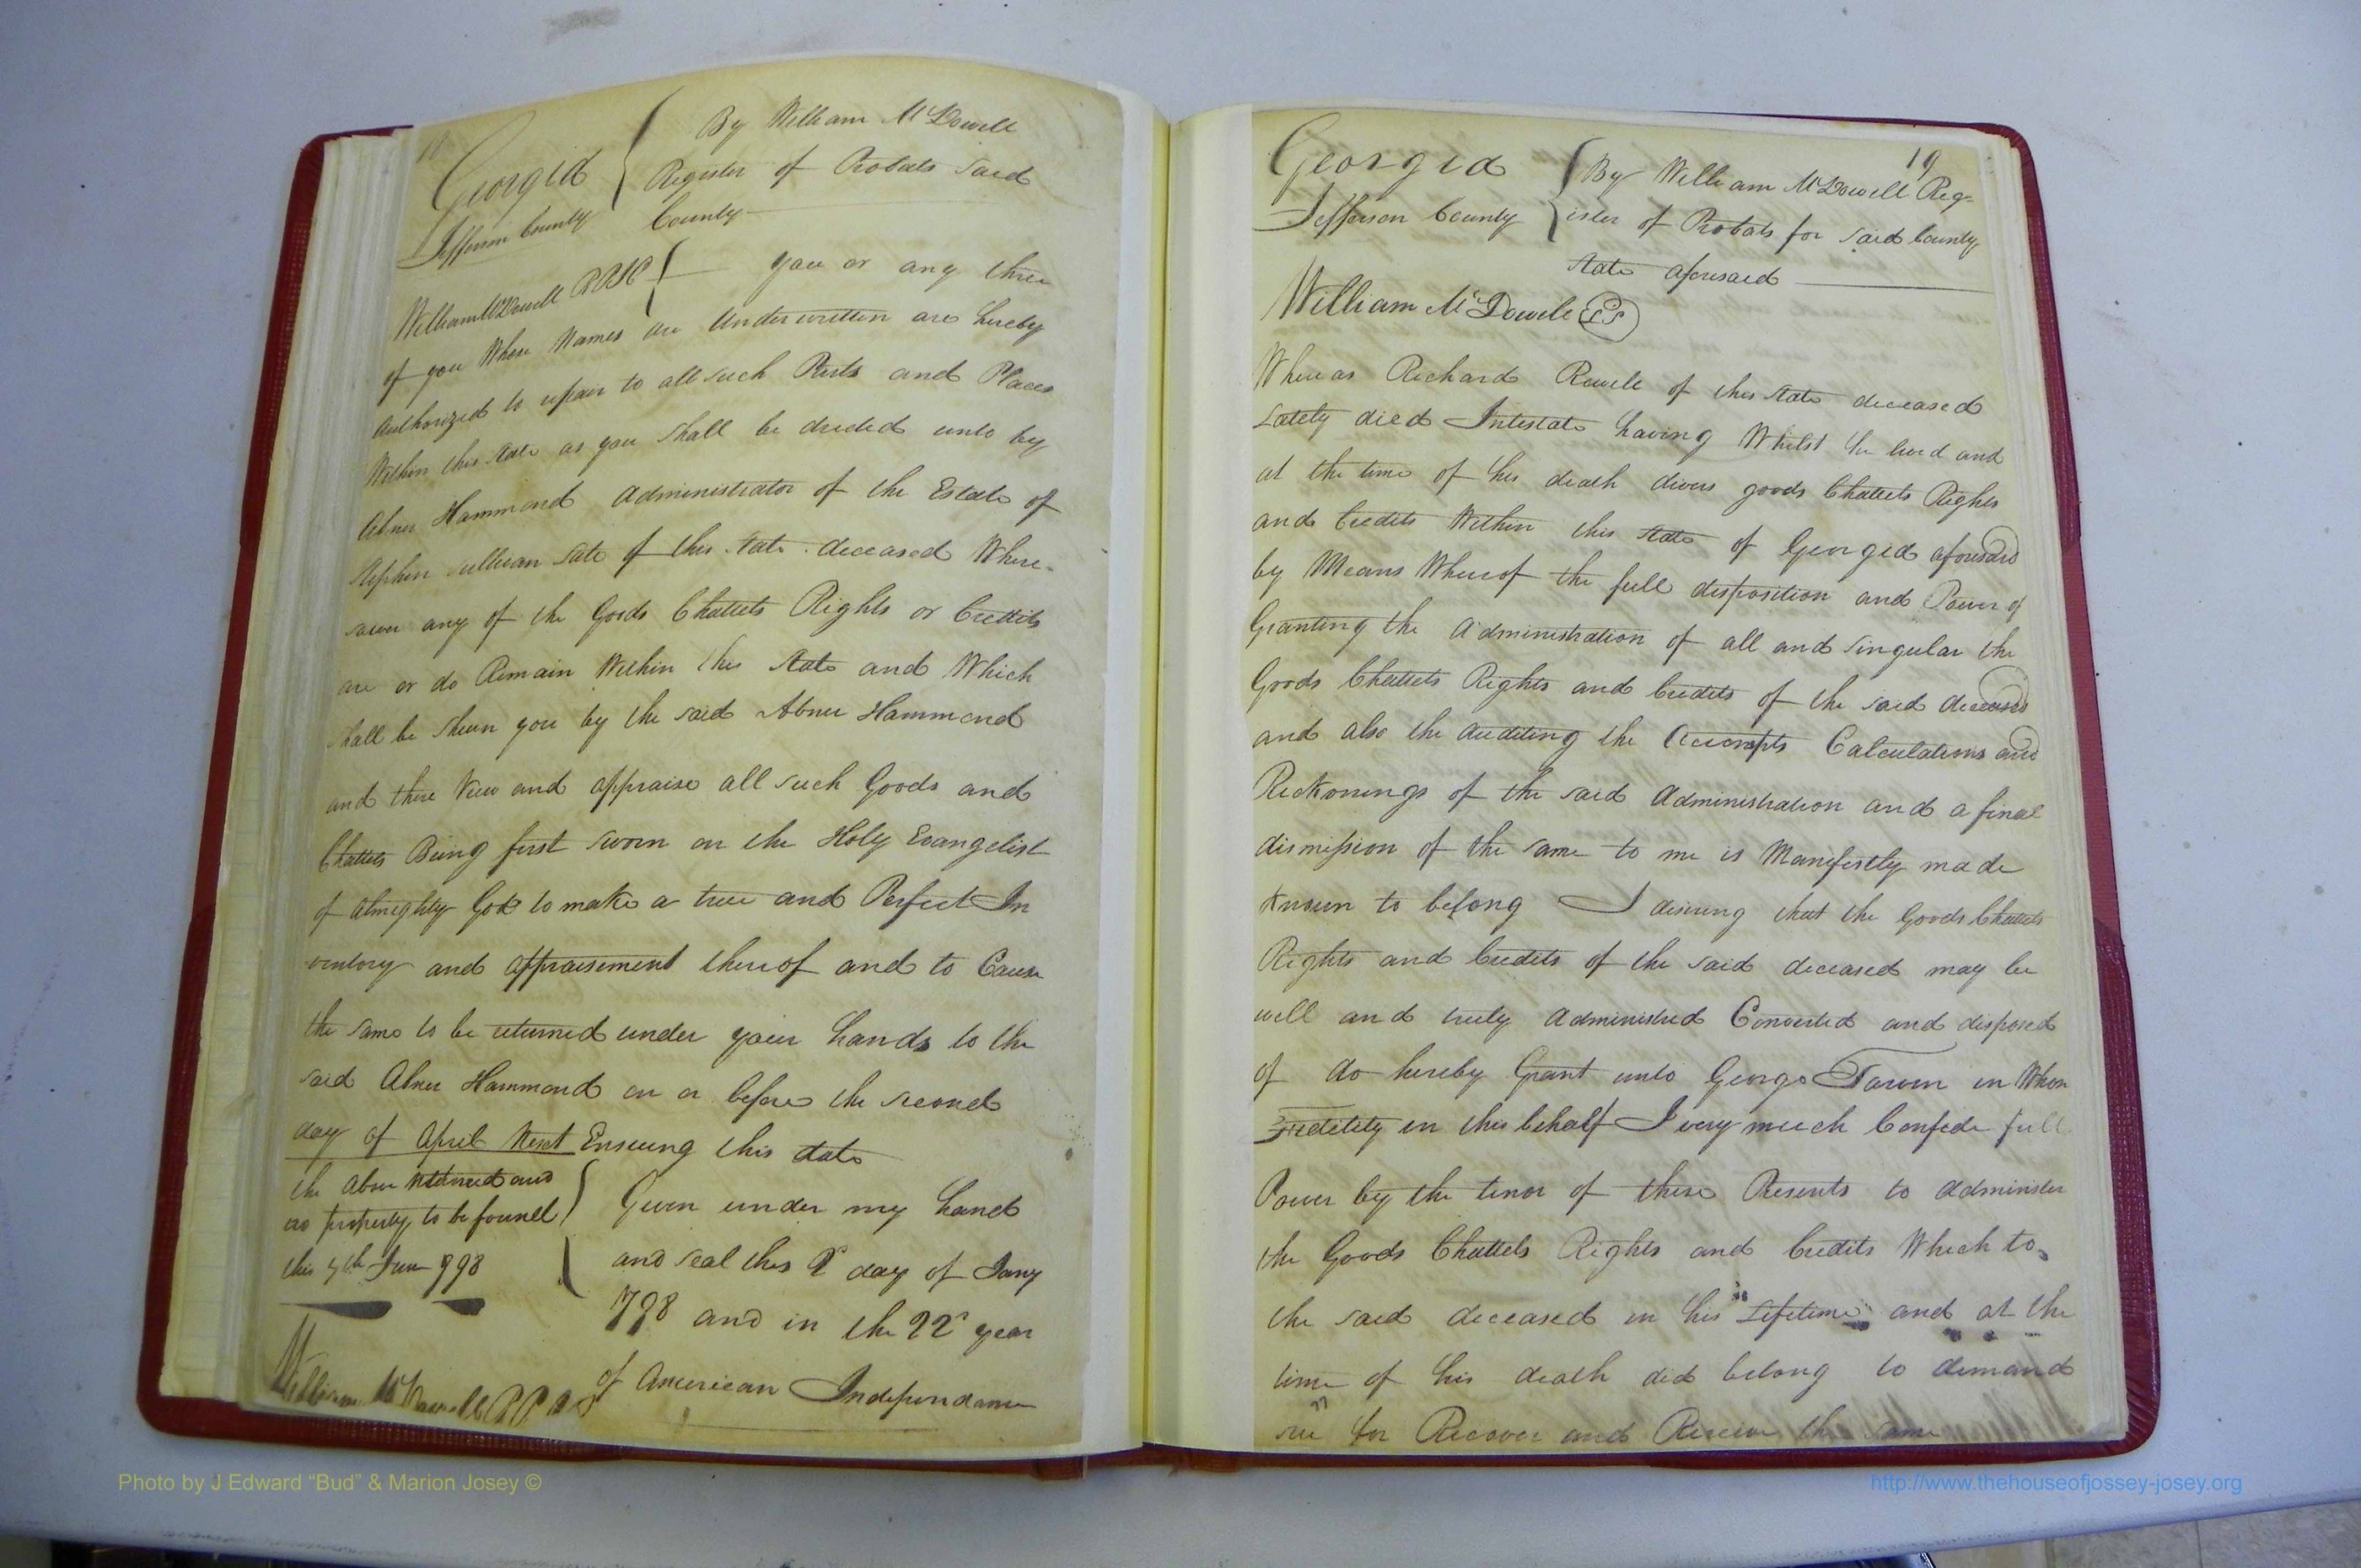 18
Georgia
By William McDowell
Register of Probats Said
Jefferson County
County
William McDowell RPJC
you or any three
of you Whose Names are Underwritten are hereby
Authorized to repair to all such Parts and Places
Within this State as you shall be directed unto by
Abner Hammond Administrator of the Estate of
Stephen Sullivan Late of this State deceased Where-
soever any of the Goods Chattels Rights or Creditts
are or do Remain Within this State and Which
shall be shewn you by the said Abner Hammond
and there View and appraise all such Goods and
Chattels Being first sworn on the Holy Evangelist
of Almighty God to make a true and Perfect In
ventory and appraisement thereof and to Cause
the same to be returned under your hands to the
said Abner Hammond on or before the second
day of April Next Ensuing this date
the above returned and
no property to be found
this 7th June 798
Given under my hand
and seal this 2d day of Jany
798 and in the 22d year
of American Independance
William McDowell
Georgia
19
By William McDowell Reg=
Jefferson County
ister of Probats for said County
State aforesaid
William McDowell LS
Whereas Richard Rowell of this State deceased
Lately died Intestate having Whilst he lived and
at the time of his death divers goods Chattels Rights
and Credits Within this State of Georgia aforesaid
by Means Whereof the full disposition and Power of
Granting the Administration of all and Singular the
Goods Chattels Rights and Credits of the said deceased
and also the Auditing the Accompts Calculations and
Reckonings of the said Administration and a final
dismission of the same to me is Manifestly made
known to belong I desiring that the Goods Chattels
Rights and Credits of the said deceased may be
well and truly Administred Converted and disposed
of do hereby Grant unto George Tarvin in Whose
Fidelity in this behalf I very much Confide full
Power by the tenor of these Presents to administer
the Goods Chattels Rights and Credits Which to
the said deceased in his Lifetime and at the
time of his death did belong to demand
sue for Recover and Receive the same
Photo by J Edward “Bud” & Marion Josey ©
http://www.thehouseofjossey-josey.org